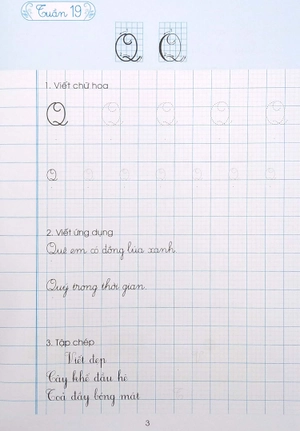 Tuần 19
Q Q
1. Viết chữ hoa
Q Q Q Q Q
Q Q Q Q Q Q Q
2. Viết ứng dụng
Quê em có đồng lúa xanh.
Quý trọng thời gian.
3. Tập chép
Viết đẹp
Cây khế đầu hè
Toả đầy bóng mát
3